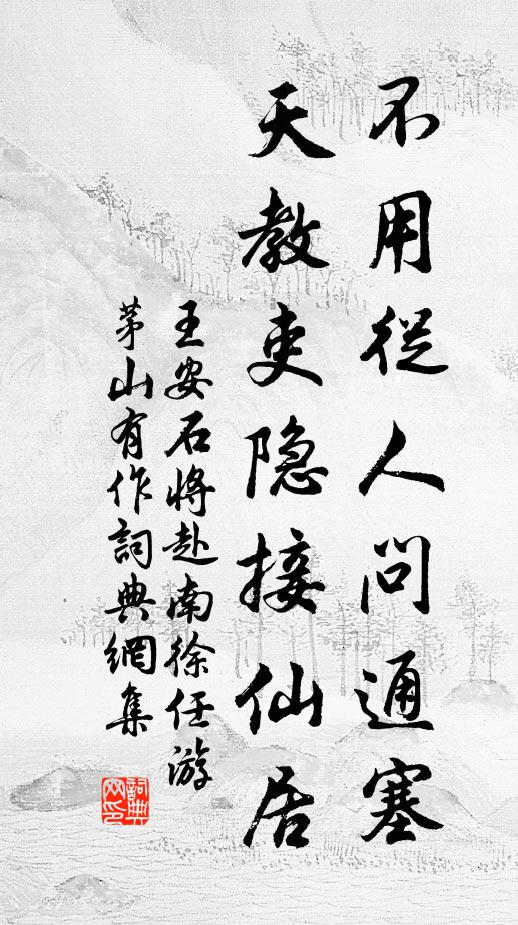 不用從人問通塞
天教吏隐接仙居
王安石將赴南徐任游
茅山有作詞典網集
詞典
网印